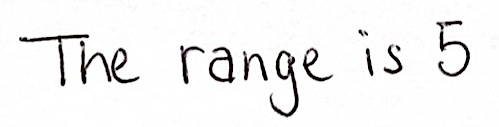 The range is 5